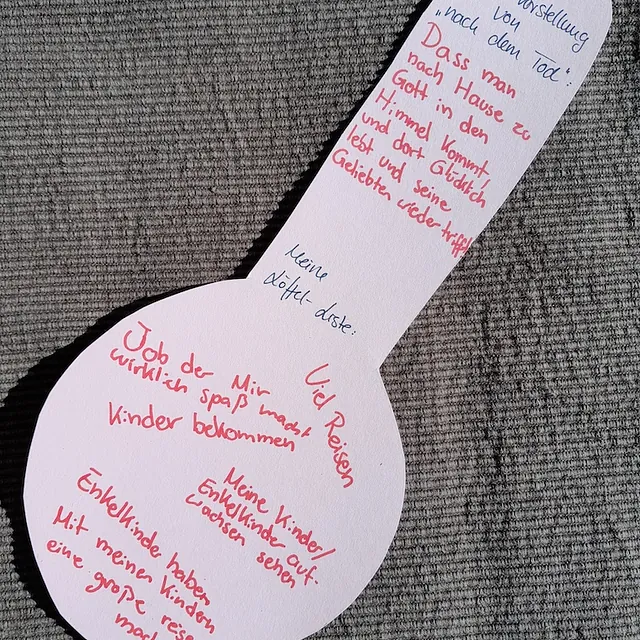 vorstellung
von
„nach dem Tod":
Dass man
nach Hause zu
Gott in den
Himmel kommt,
und dort Glücklich
lebt und seine
Geliebten wieder trifft
Meine
Löffel-Liste:
Job der Mir
wirklich spaß macht
Viel Reisen
Kinder bekommen
Meine Kinder/
Enkelkinder auf-
wachsen sehen
Enkelkinder haben
Mit meinen Kindern
eine große reise
mach